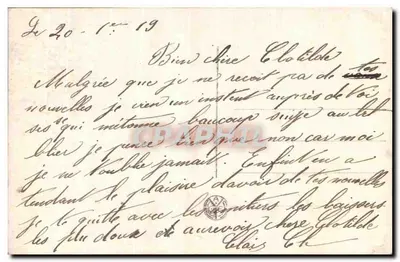 Le 20 - 1er 19
Bien chère Clotilde
Malgrée que je ne recoit pas de tes
nouvelles je vien un instent auprès de toi
ses qui m'étonne baucoup suije aublet
blier je pence bien que non car moi
je ne t'oublie jamait. Enfint en a
tendant le plaisire d'avoir de tes nouvelles
je te quitte avec les milliers les baisers
les plu doux et aurevoir chere Clotilde